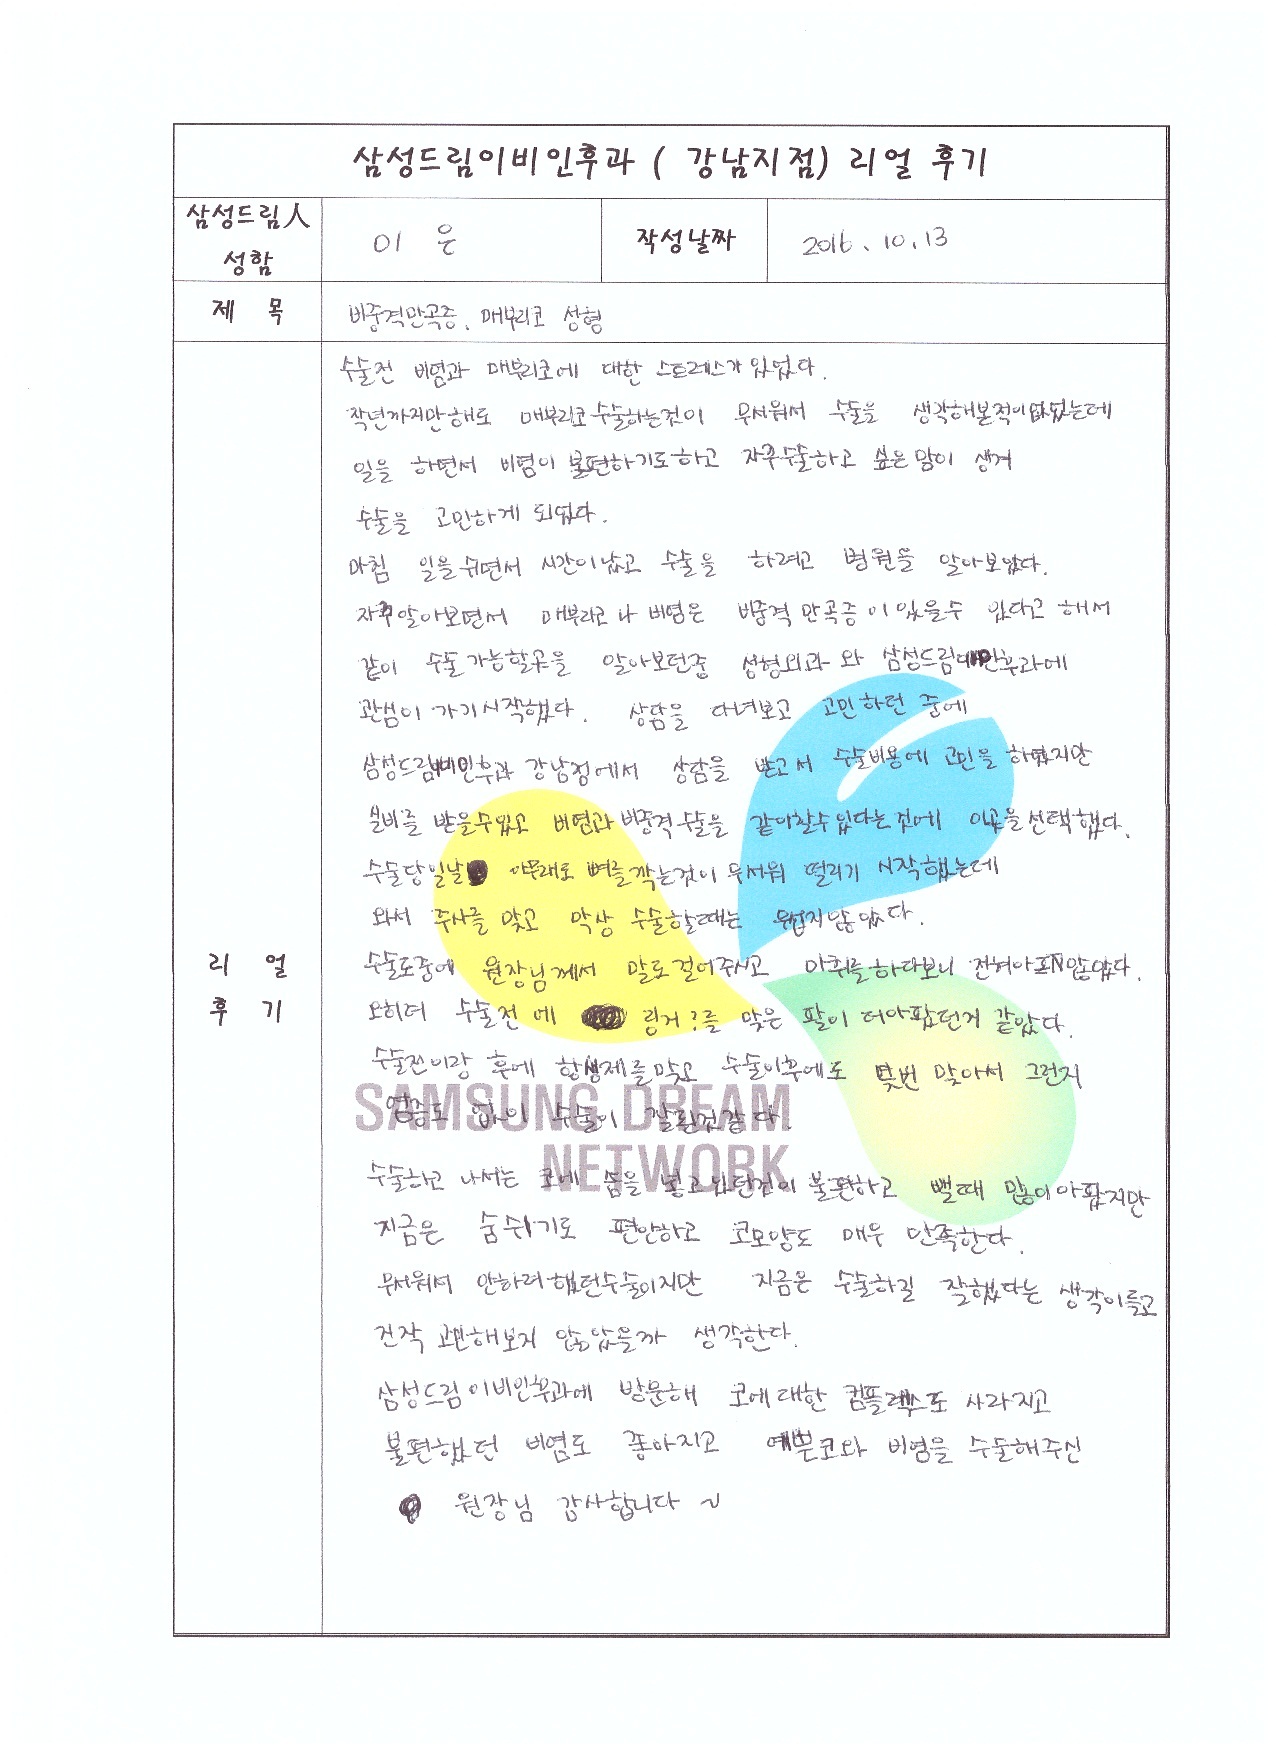 삼성드림이비인후과 ( 강남지점) 리얼 후기
삼성드림人
성함
이 은
작성날짜
2016. 10. 13
제 목
비중격만곡증, 매부리코 성형
리 얼
후 기
수술전 비염과 매부리코에 대한 스트레스가 있었다.
작년까지만해도 매부리코수술하는것이 무서워서 수술을 생각해본적이 없었는데
일을 하면서 비염이 불편하기도하고 자주수술하고 싶은맘이 생겨
수술을 고민하게 되었다.
마침 일을쉬면서 시간이났고 수술을 하려고 병원을 알아보았다.
자주알아보면서 매부리코나 비염은 비중격만곡증이있을수 있다고 해서
같이 수술가능할곳을 알아보던중 성형외과와 삼성드림이비인후과에
관심이 가기시작했다. 상담을 다녀보고 고민하던 중에
삼성드림이비인후과 강남점에서 상담을 받고서 수술비용에 고민을 하였지만
실비를 받을수있고 비염과 비중격수술을 같이할수있다는것에 이곳을선택했다.
수술당일날 아무래도 뼈를깎는것이 무서워 떨리기 시작했는데
와서 주사를 맞고 막상 수술할때는 무섭지않았다.
수술도중에 원장님께서 말로걸어주시고 마취를하다보니 전혀아프지않았다.
오히려 수술전에 링거?를 맞은 팔이 더아팠던거 같았다.
수술전이랑 후에 항생제를맞고 수술이후에도 몇번 맞아서 그런지
염증도 없이 수술이 잘된것같다.
SAMSUNG DREAM
NETWORK
수술하고 나서는 코에 솜을 넣고있던것이 불편하고 뺄때 많이아팠지만
지금은 숨쉬기도 편안하고 코모양도 매우 만족한다.
무서워서 안하려했던수술이지만 지금은 수술하길 잘했다는 생각이들고
진작 고민해보지 않았을까 생각한다.
삼성드림이비인후과에 방문해 코에대한 컴플렉스도 사라지고
불편했던 비염도 좋아지고 예쁜코와 비염을 수술해주신
원장님 감사합니다 ~